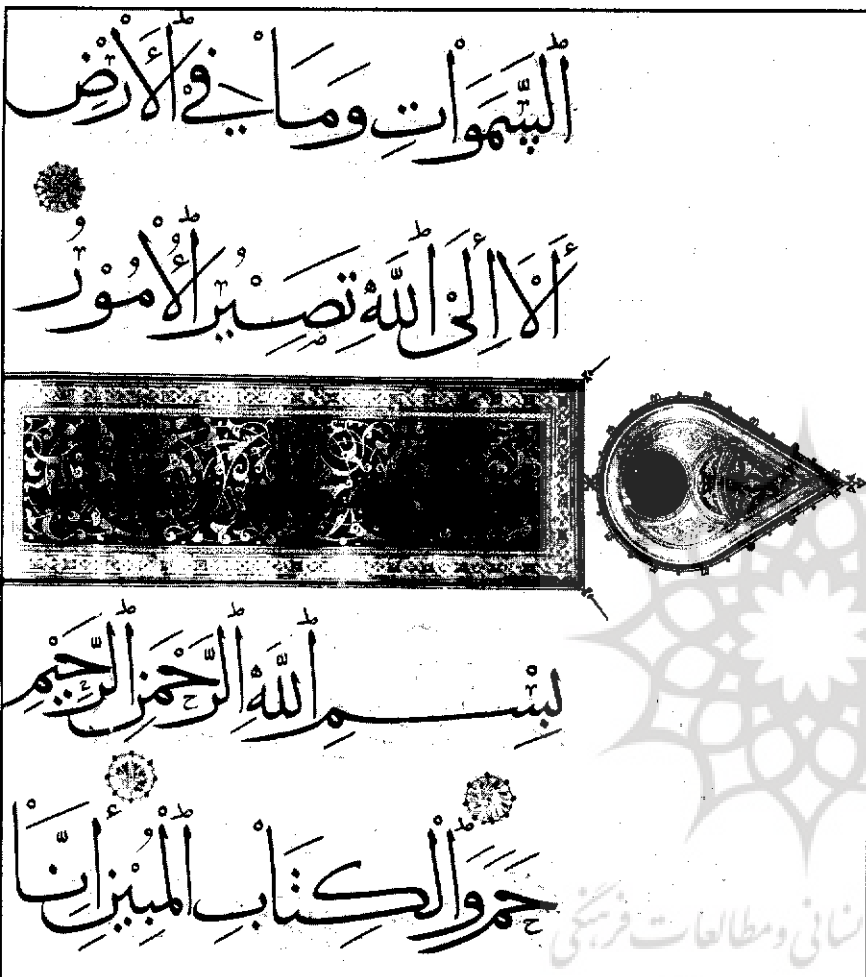 السَّمَوَاتِ وَمَا فِي الْأَرْضِ
أَلَا إِلَى اللَّهِ تَصِيرُ الْأُمُورُ
بِسْمِ اللَّهِ الرَّحْمَنِ الرَّحِيمِ
حم وَالْكِتَابِ الْمُبِينِ إِنَّا
انسانی و مطالعات فرهنگی